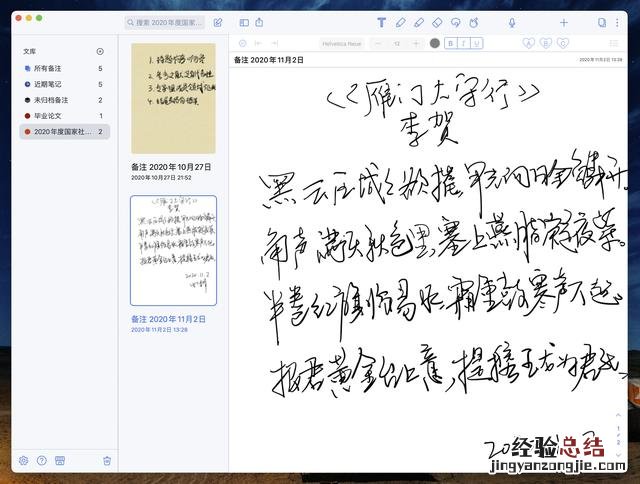 搜索 2020年度国家社...
文库
所有备注 5
近期笔记 5
未归档备注 2
毕业论文 1
2020年度国家社... 2
备注 2020年10月27日
2020年10月27日 21:52
《雁门太守行》
李贺
2020.11.2
备注 2020年11月2日
2020年11月2日 13:28
Helvetica Neue
12
B I U
A B C
备注 2020年11月2日
2020年11月2日 13:28
《雁门太守行》
李贺
黑云压城城欲摧,甲光向日金鳞开。
角声满天秋色里,塞上燕脂凝夜紫。
半卷红旗临易水,霜重鼓寒声不起。
报君黄金台上意,提携玉龙为君死。
1
2
经验总结
jingyanzongjie.com